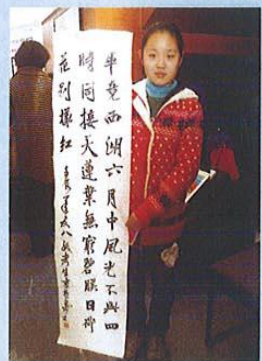 畢竟西湖六月中風光不與四
時同接天蓮葉無窮碧映日荷
花別樣紅